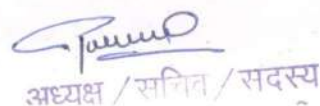 अध्यक्ष / सचिव / सदस्य